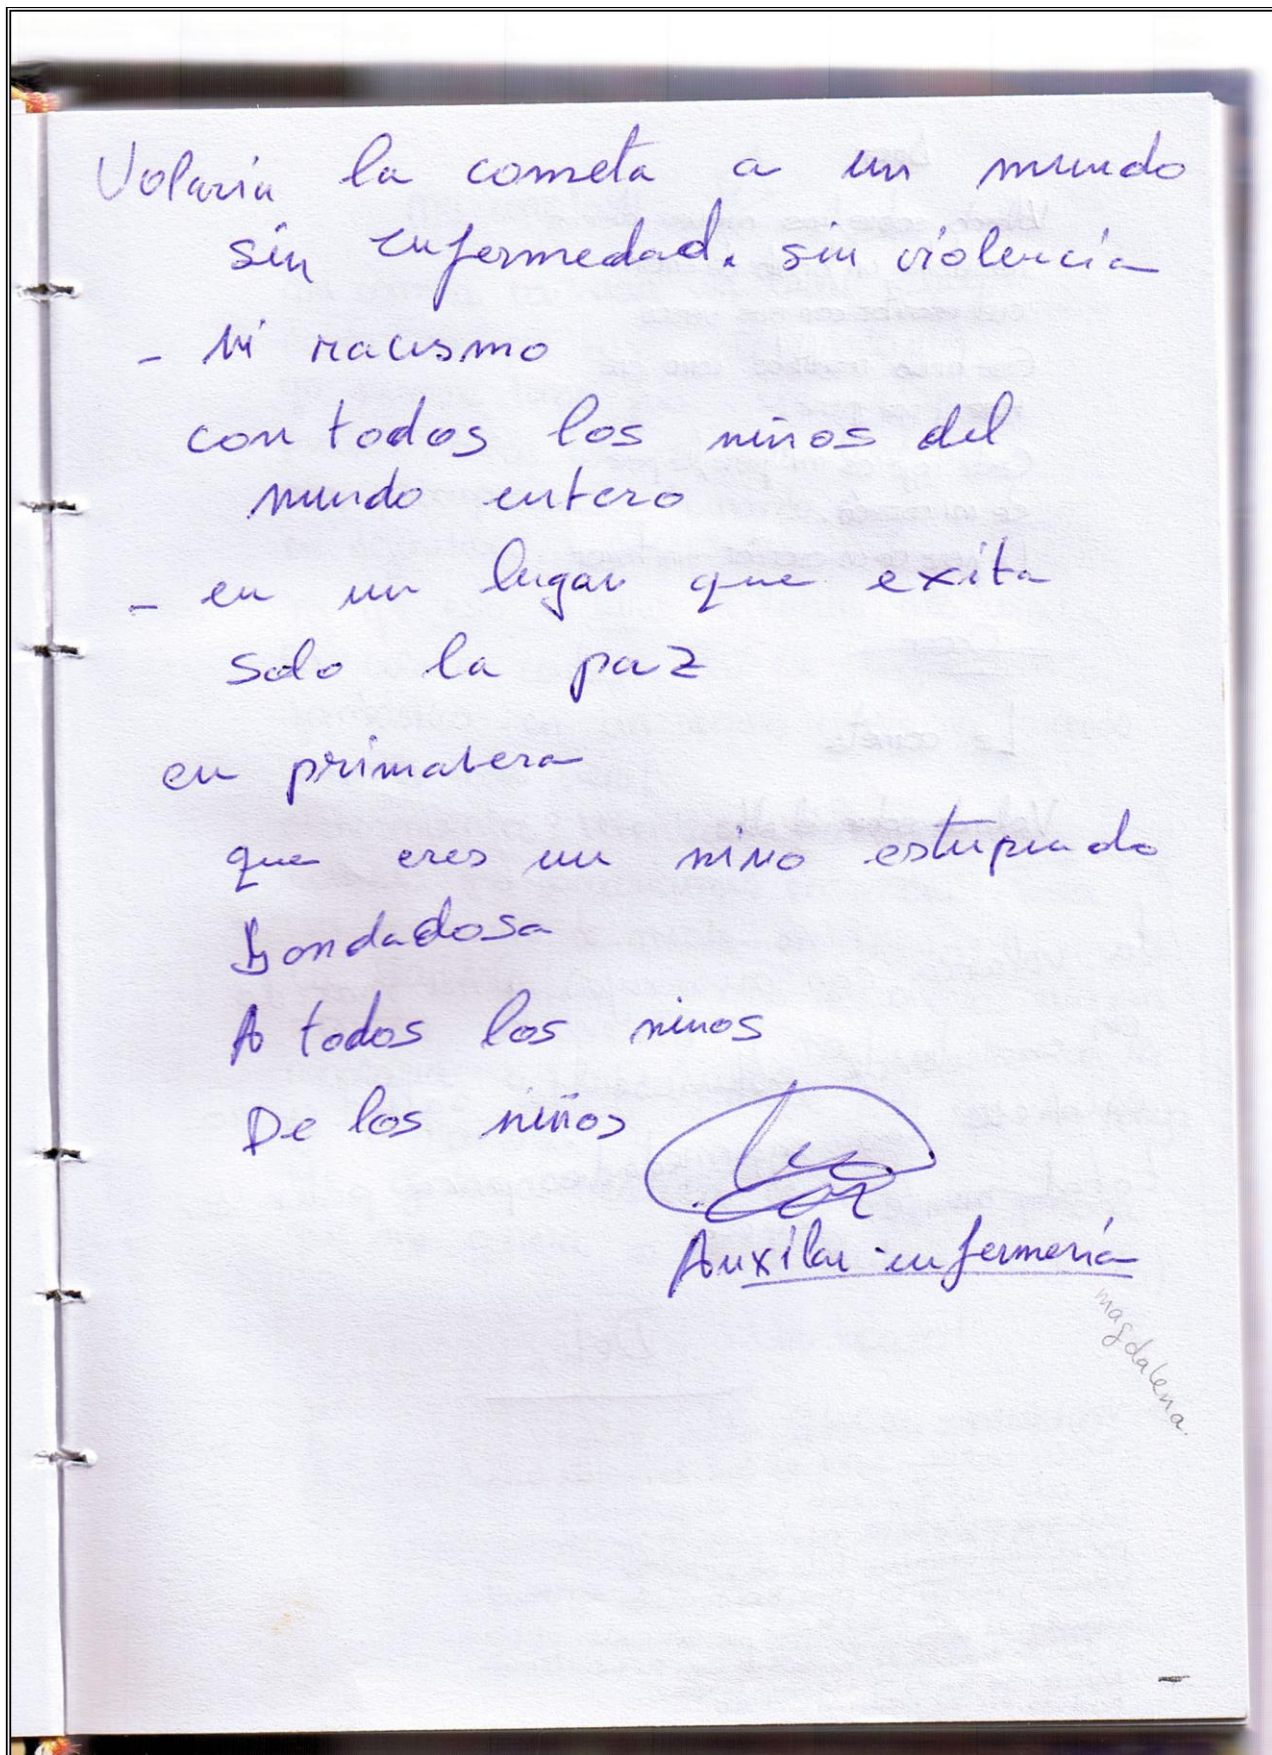 Volaria la cometa a un mundo
sin enfermedad. sin violencia
- Ni racismo
con todos los niños del
mundo entero
- en un lugar que exita
Solo la paz
en primabera
que eres un niño estupendo
Bondadosa
A todos los niños
De los niños
Auxilar enfermería
magdalena.